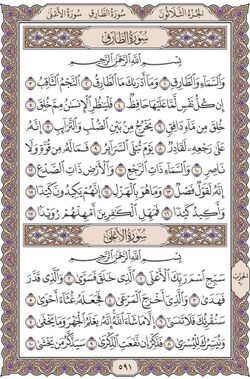 الجزء الثلاثون
سورة الطارق
سورة الأعلى
سورة الطارق
بسم الله الرحمن الرحيم
والسماء والطارق ١ وما أدراك ما الطارق ٢ النجم الثاقب
٣ إن كل نفس لما عليها حافظ ٤ فلينظر الإنسان مم خلق ٥
خلق من ماء دافق ٦ يخرج من بين الصلب والترائب ٧ إنه
على رجعه لقادر ٨ يوم تبلى السرائر ٩ فما له من قوة ولا
ناصر ١٠ والسماء ذات الرجع ١١ والأرض ذات الصدع
١٢ إنه لقول فصل ١٣ وما هو بالهزل ١٤ إنهم يكيدون كيدا ١٥
وأكيد كيدا ١٦ فمهل الكافرين أمهلهم رويدا ١٧
سورة الأعلى
بسم الله الرحمن الرحيم
سبح اسم ربك الأعلى ١ الذي خلق فسوى ٢ والذي قدر
فهدى ٣ والذي أخرج المرعى ٤ فجعله غثاء أحوى ٥
سنقرئك فلا تنسى ٦ إلا ما شاء الله إنه يعلم الجهر وما يخفى
٧ ونيسرك لليسرى ٨ فذكر إن نفعت الذكرى ٩ سيذكر من يخشى ١٠
٥٩١